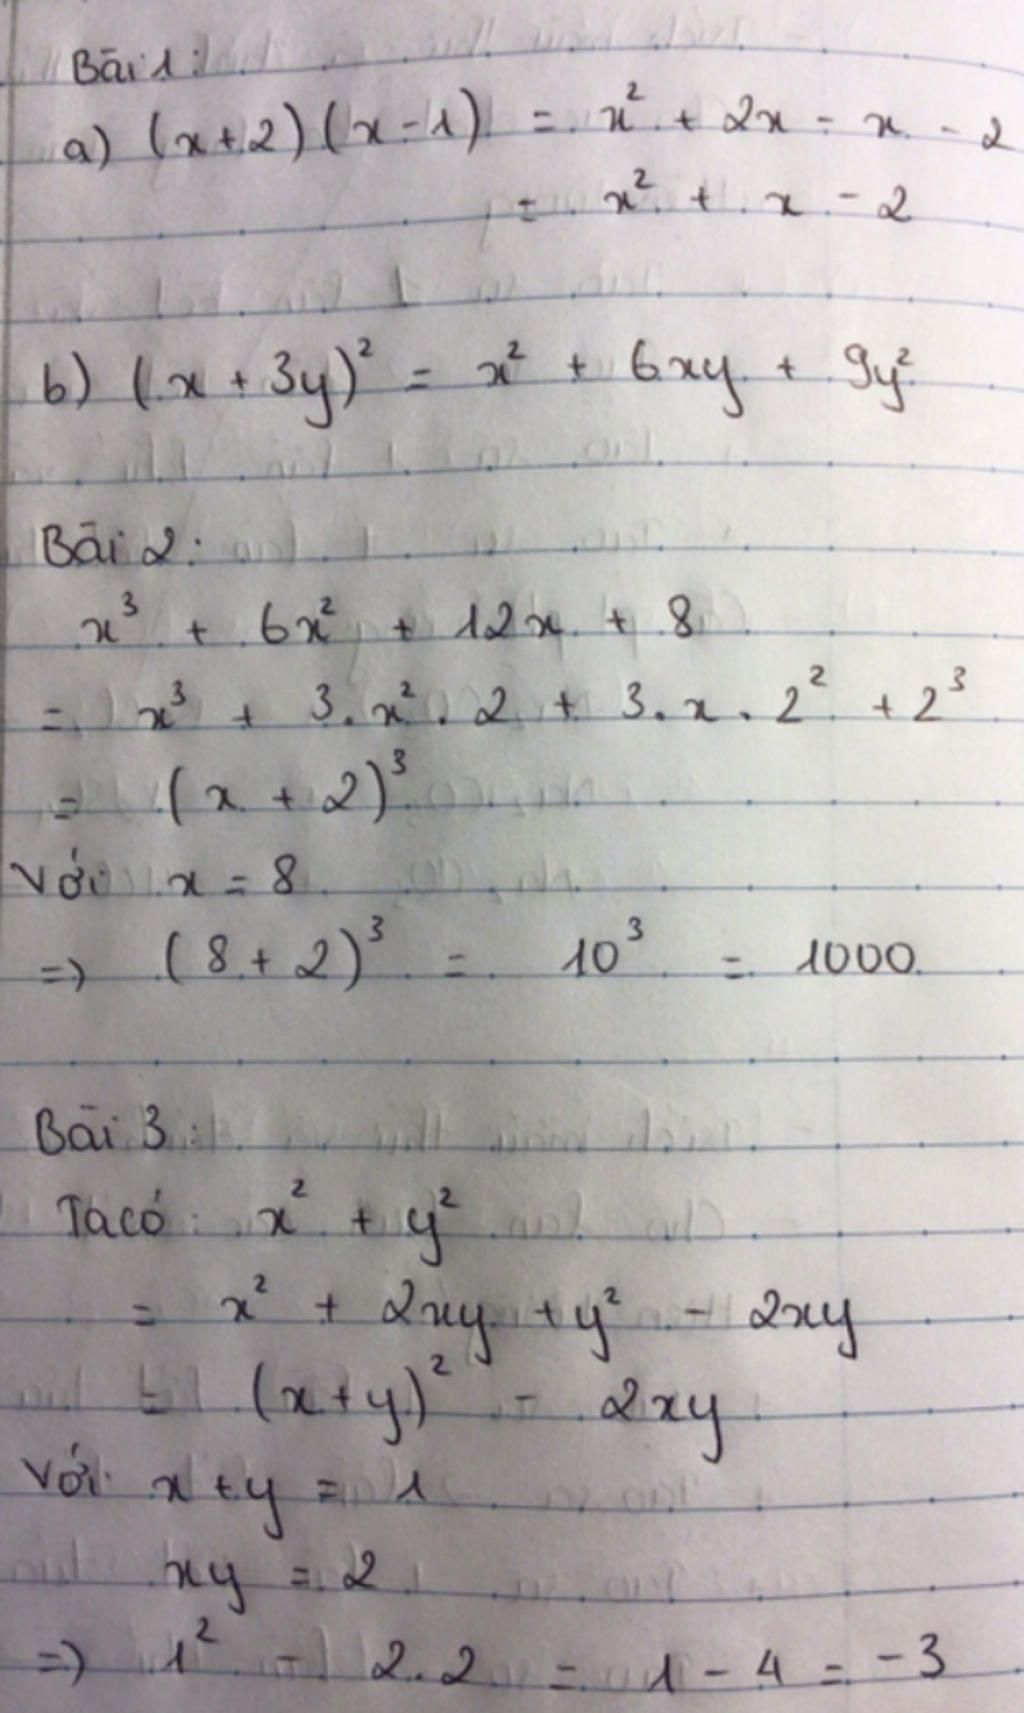 Bài 1:
a) (x+2)(x-1) = x² + 2x - x - 2
= x² + x - 2
b) (x + 3y)² = x² + 6xy + 9y²
Bài 2:
x³ + 6x² + 12x + 8
= x³ + 3.x².2 + 3.x.2² + 2³
= (x + 2)³
Với x = 8
=> (8 + 2)³ = 10³ = 1000
Bài 3:
Ta có: x² + y²
= x² + 2xy + y² - 2xy
= (x+y)² - 2xy
Với x + y = 1
xy = 2
=> 1² - 2.2 = 1 - 4 = -3